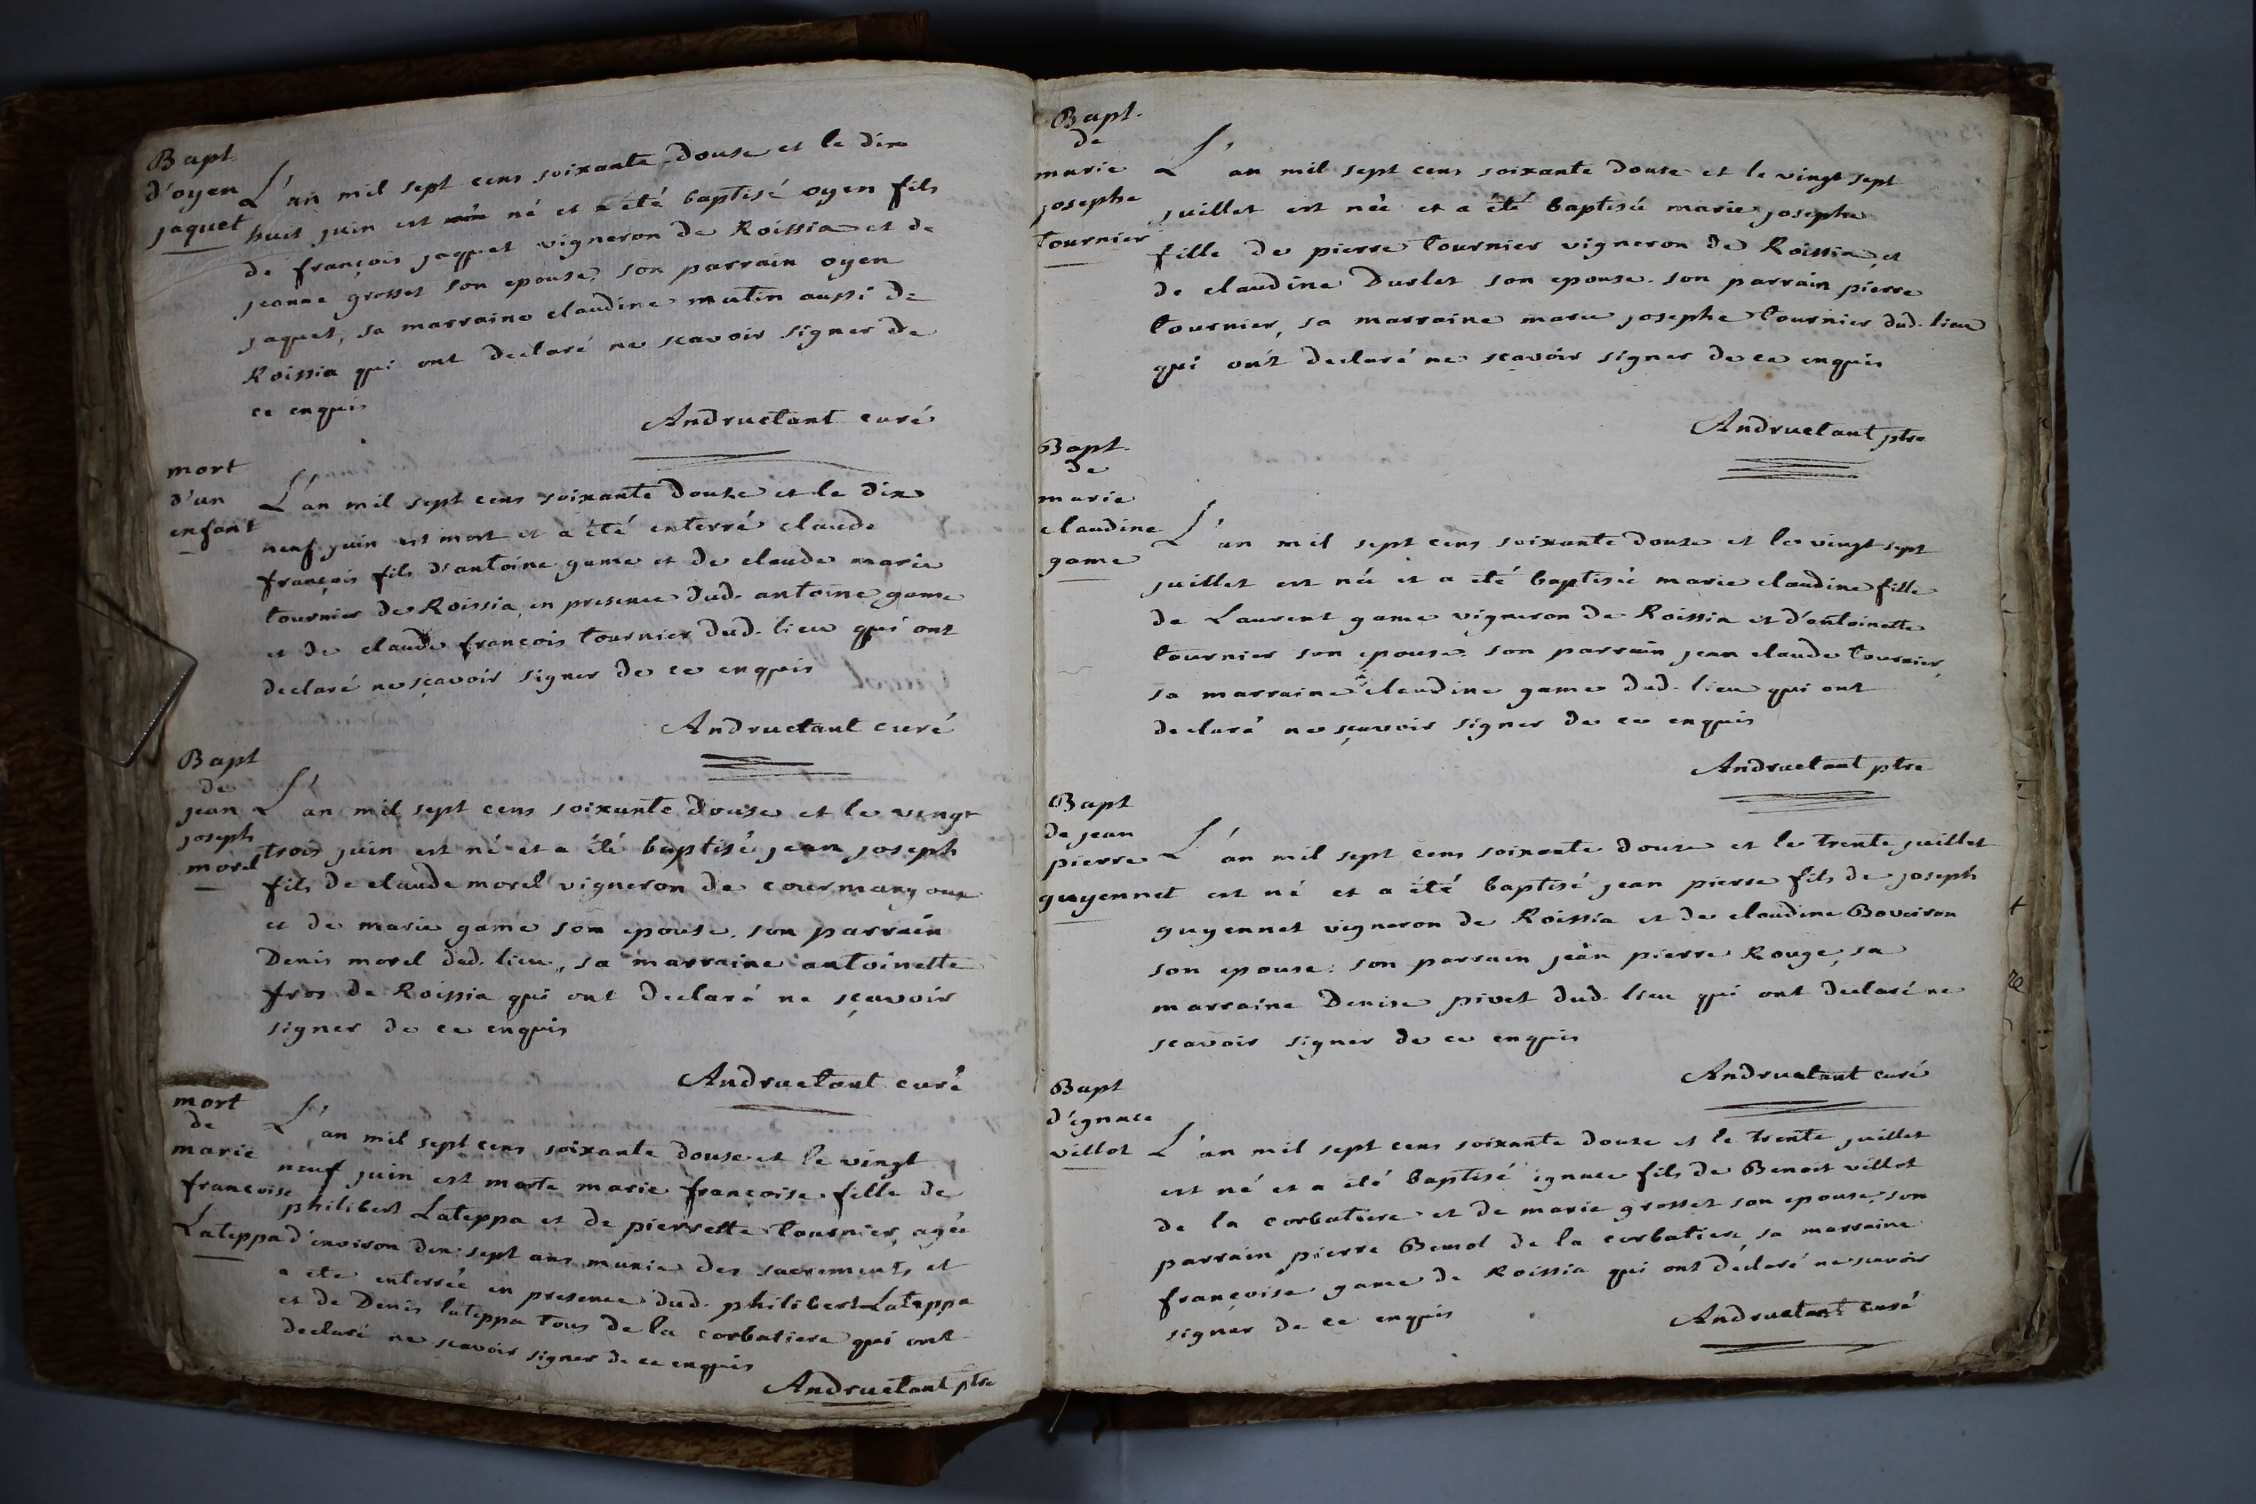 Bapt
d'oyen
jaquet
L'an mil sept cens soixante douse et le dix
huit juin est né et a été baptisé oyen fils
de françois jaquet vigneron de Roissia et de
jeanne grosset son epouse, son parrain oyen
jaquet, sa marraine claudine mutin aussi de
Roissia qui ont declaré ne scavoir signer de
ce enquis
Andruetant curé
mort
d'un
enfant
L'an mil sept cens soixante douse et le dix
neuf juin est mort et a été enterré claude
françois fils d'antoine game et de claude marie
tournier de Roissia, en presence dud. antoine game
et de claude françois tournier dud. lieu qui ont
declaré ne sçavoir signer de ce enquis
Andruetant curé
Bapt
de
jean
joseph
morel
L'an mil sept cens soixante douse et le vingt
trois juin est né et a été baptisé jean joseph
fils de claude morel vigneron de courmangoux
et de marie game son epouse. son parrain
Denis morel dud. lieu, sa marraine antoinette
fros de Roissia qui ont declaré ne sçavoir
signer de ce enquis
Andruetant curé
mort
de
marie
françoise
Lateppa
L'an mil sept cens soixante douse et le vingt
neuf juin est morte marie françoise fille de
philibert Lateppa et de pierrette tournier, agée
d'environ dix sept ans, munie des sacrements et
a ete enterrée en presence dud. philibert Lateppa
et de Denis lateppa tous de la corbatiere qui ont
declaré ne scavoir signer de ce enquis
Andruetant ptre
Bapt.
de
marie
josephe
tournier
L'an mil sept cens soixante douse et le vingt sept
juillet est née et a été baptisée marie josephe
fille de pierre tournier vigneron de Roissia et
de claudine Durlet son epouse. son parrain pierre
tournier, sa marraine marie josephe tournier dud. lieu
qui ont declaré ne sçavoir signer de ce enquis
Andruetant ptre
Bapt.
de
marie
claudine
game
L'an mil sept cens soixante douse et le vingt sept
juillet est née et a été baptisée marie claudine fille
de Laurent game vigneron de Roissia et d'antoinette
tournier son epouse. son parrain jean claude tournier,
sa marraine claudine game dud. lieu qui ont
declaré ne sçavoir signer de ce enquis
Andruetant ptre
Bapt
de jean
pierre
guyennet
L'an mil sept cens soixante douse et le trente juillet
est né et a été baptisé jean pierre fils de joseph
guyennet vigneron de Roissia et de claudine Boveiron
son epouse: son parrain jean pierre Rouge, sa
marraine Denise pivet dud. lieu qui ont declaré ne
scavoir signer de ce enquis
Andruetant curé
Bapt
d'ignace
villot
L'an mil sept cens soixante douse et le trente juillet
est né et a été baptisé ignace fils de Benoit villot
de la corbatiere et de marie grosset son epouse, son
parrain pierre de la corbatiere, sa marraine
françoise game de Roissia qui ont declaré ne scavoir
signer de ce enquis
Andruetant curé